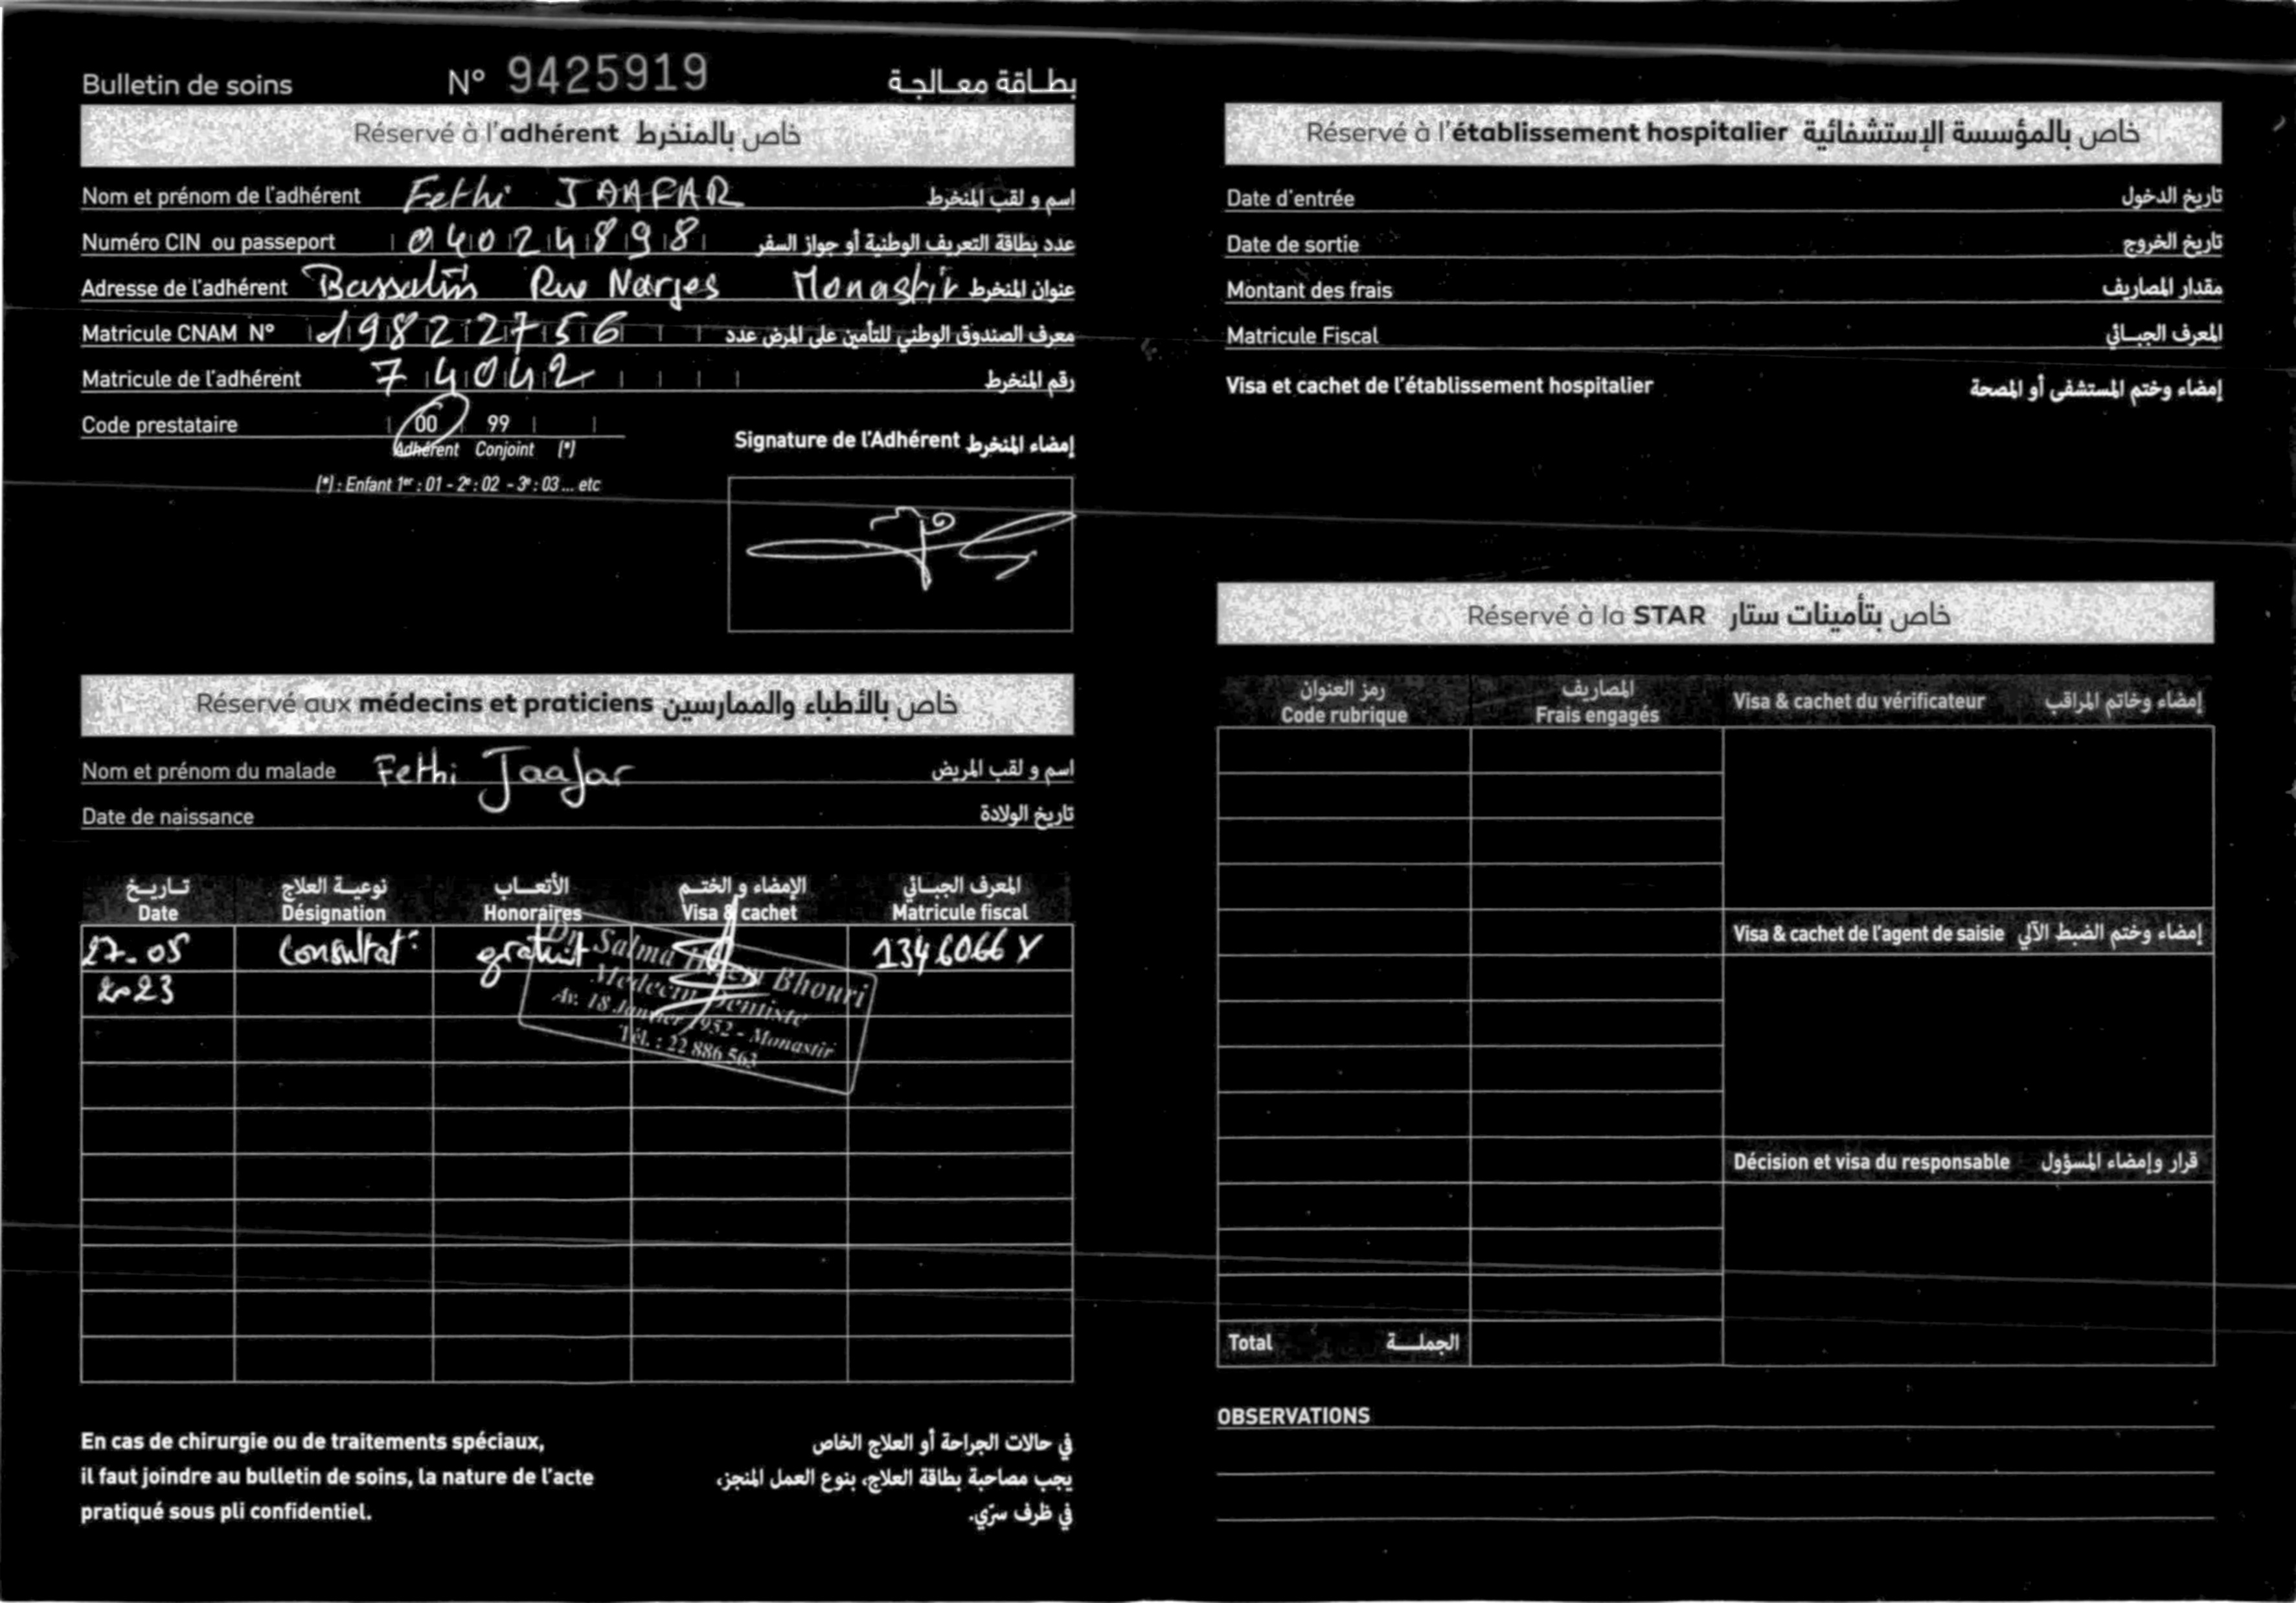 Bulletin de soins N° 9425919 بطاقة معالجة
Réservé à l'adhérent خاص بالمنخرط
Nom et prénom de l'adhérent Fethi JAAFAR اسم و لقب المنخرط
Numéro CIN ou passeport 04024898 عدد بطاقة التعريف الوطنية أو جواز السفر
Adresse de l'adhérent Rue Narjes Monastir عنوان المنخرط
Matricule CNAM N° 198227756 معرف الصندوق الوطني للتأمين على المرض عدد
Matricule de l'adhérent 74042 رقم المنخرط
Code prestataire 00 99
Adhérent Conjoint (*)
(*) : Enfant 1er : 01 - 2e : 02 - 3e : 03 ... etc
Signature de l'Adhérent إمضاء المنخرط
Réservé aux médecins et praticiens خاص بالأطباء والممارسين
Nom et prénom du malade Fethi Jaafar اسم و لقب المريض
Date de naissance تاريخ الولادة
تاريخ نوعية العلاج الأتعاب الإمضاء و الختم المعرف الجبائي
Date Désignation Honoraires Visa & cachet Matricule fiscal
27-05 Consultat° gratuit 1346066 Y
2023
Dr. Salma Bhouri
Médecin Dentiste
Av. 18 Janvier 1952 - Monastir
Tél. : 22 886 563
En cas de chirurgie ou de traitements spéciaux,
il faut joindre au bulletin de soins, la nature de l'acte
pratiqué sous pli confidentiel.
في حالات الجراحة أو العلاج الخاص
يجب مصاحبة بطاقة العلاج، بنوع العمل المنجز،
في ظرف سرّي.
Réservé à l'établissement hospitalier خاص بالمؤسسة الإستشفائية
Date d'entrée تاريخ الدخول
Date de sortie تاريخ الخروج
Montant des frais مقدار المصاريف
Matricule Fiscal المعرف الجبائي
Visa et cachet de l'établissement hospitalier إمضاء وختم المستشفى أو المصحة
Réservé à la STAR خاص بتأمينات ستار
رمز العنوان المصاريف
Code rubrique Frais engagés Visa & cachet du vérificateur إمضاء وخاتم المراقب
Visa & cachet de l'agent de saisie إمضاء وختم الضبط الآلي
Décision et visa du responsable قرار وإمضاء المسؤول
Total الجملة
OBSERVATIONS